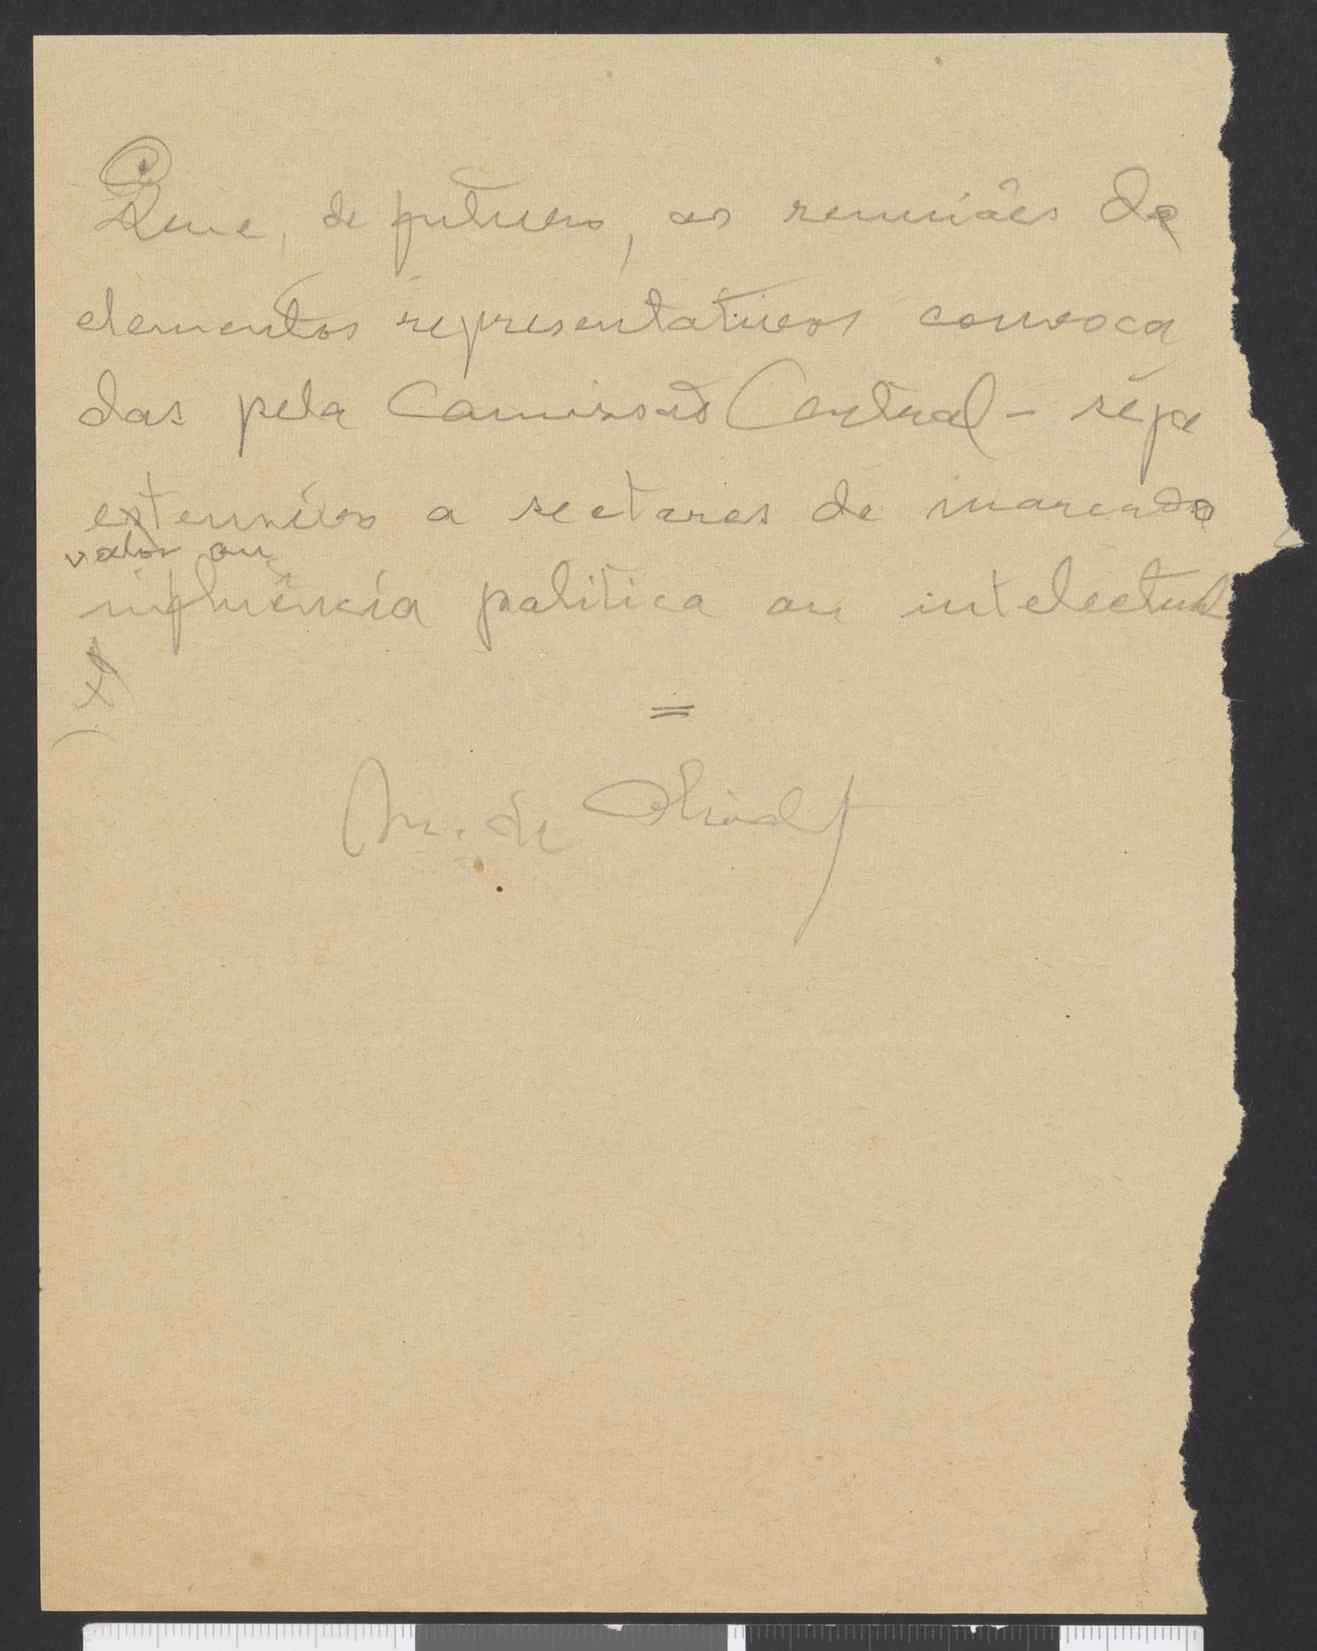 Que, de futuro, as reuniões de
elementos representativos convoca
das pela Comissão Central - seja
extensivo a sectores de marcado
valor ou
influência politica ou intelectual
M. de